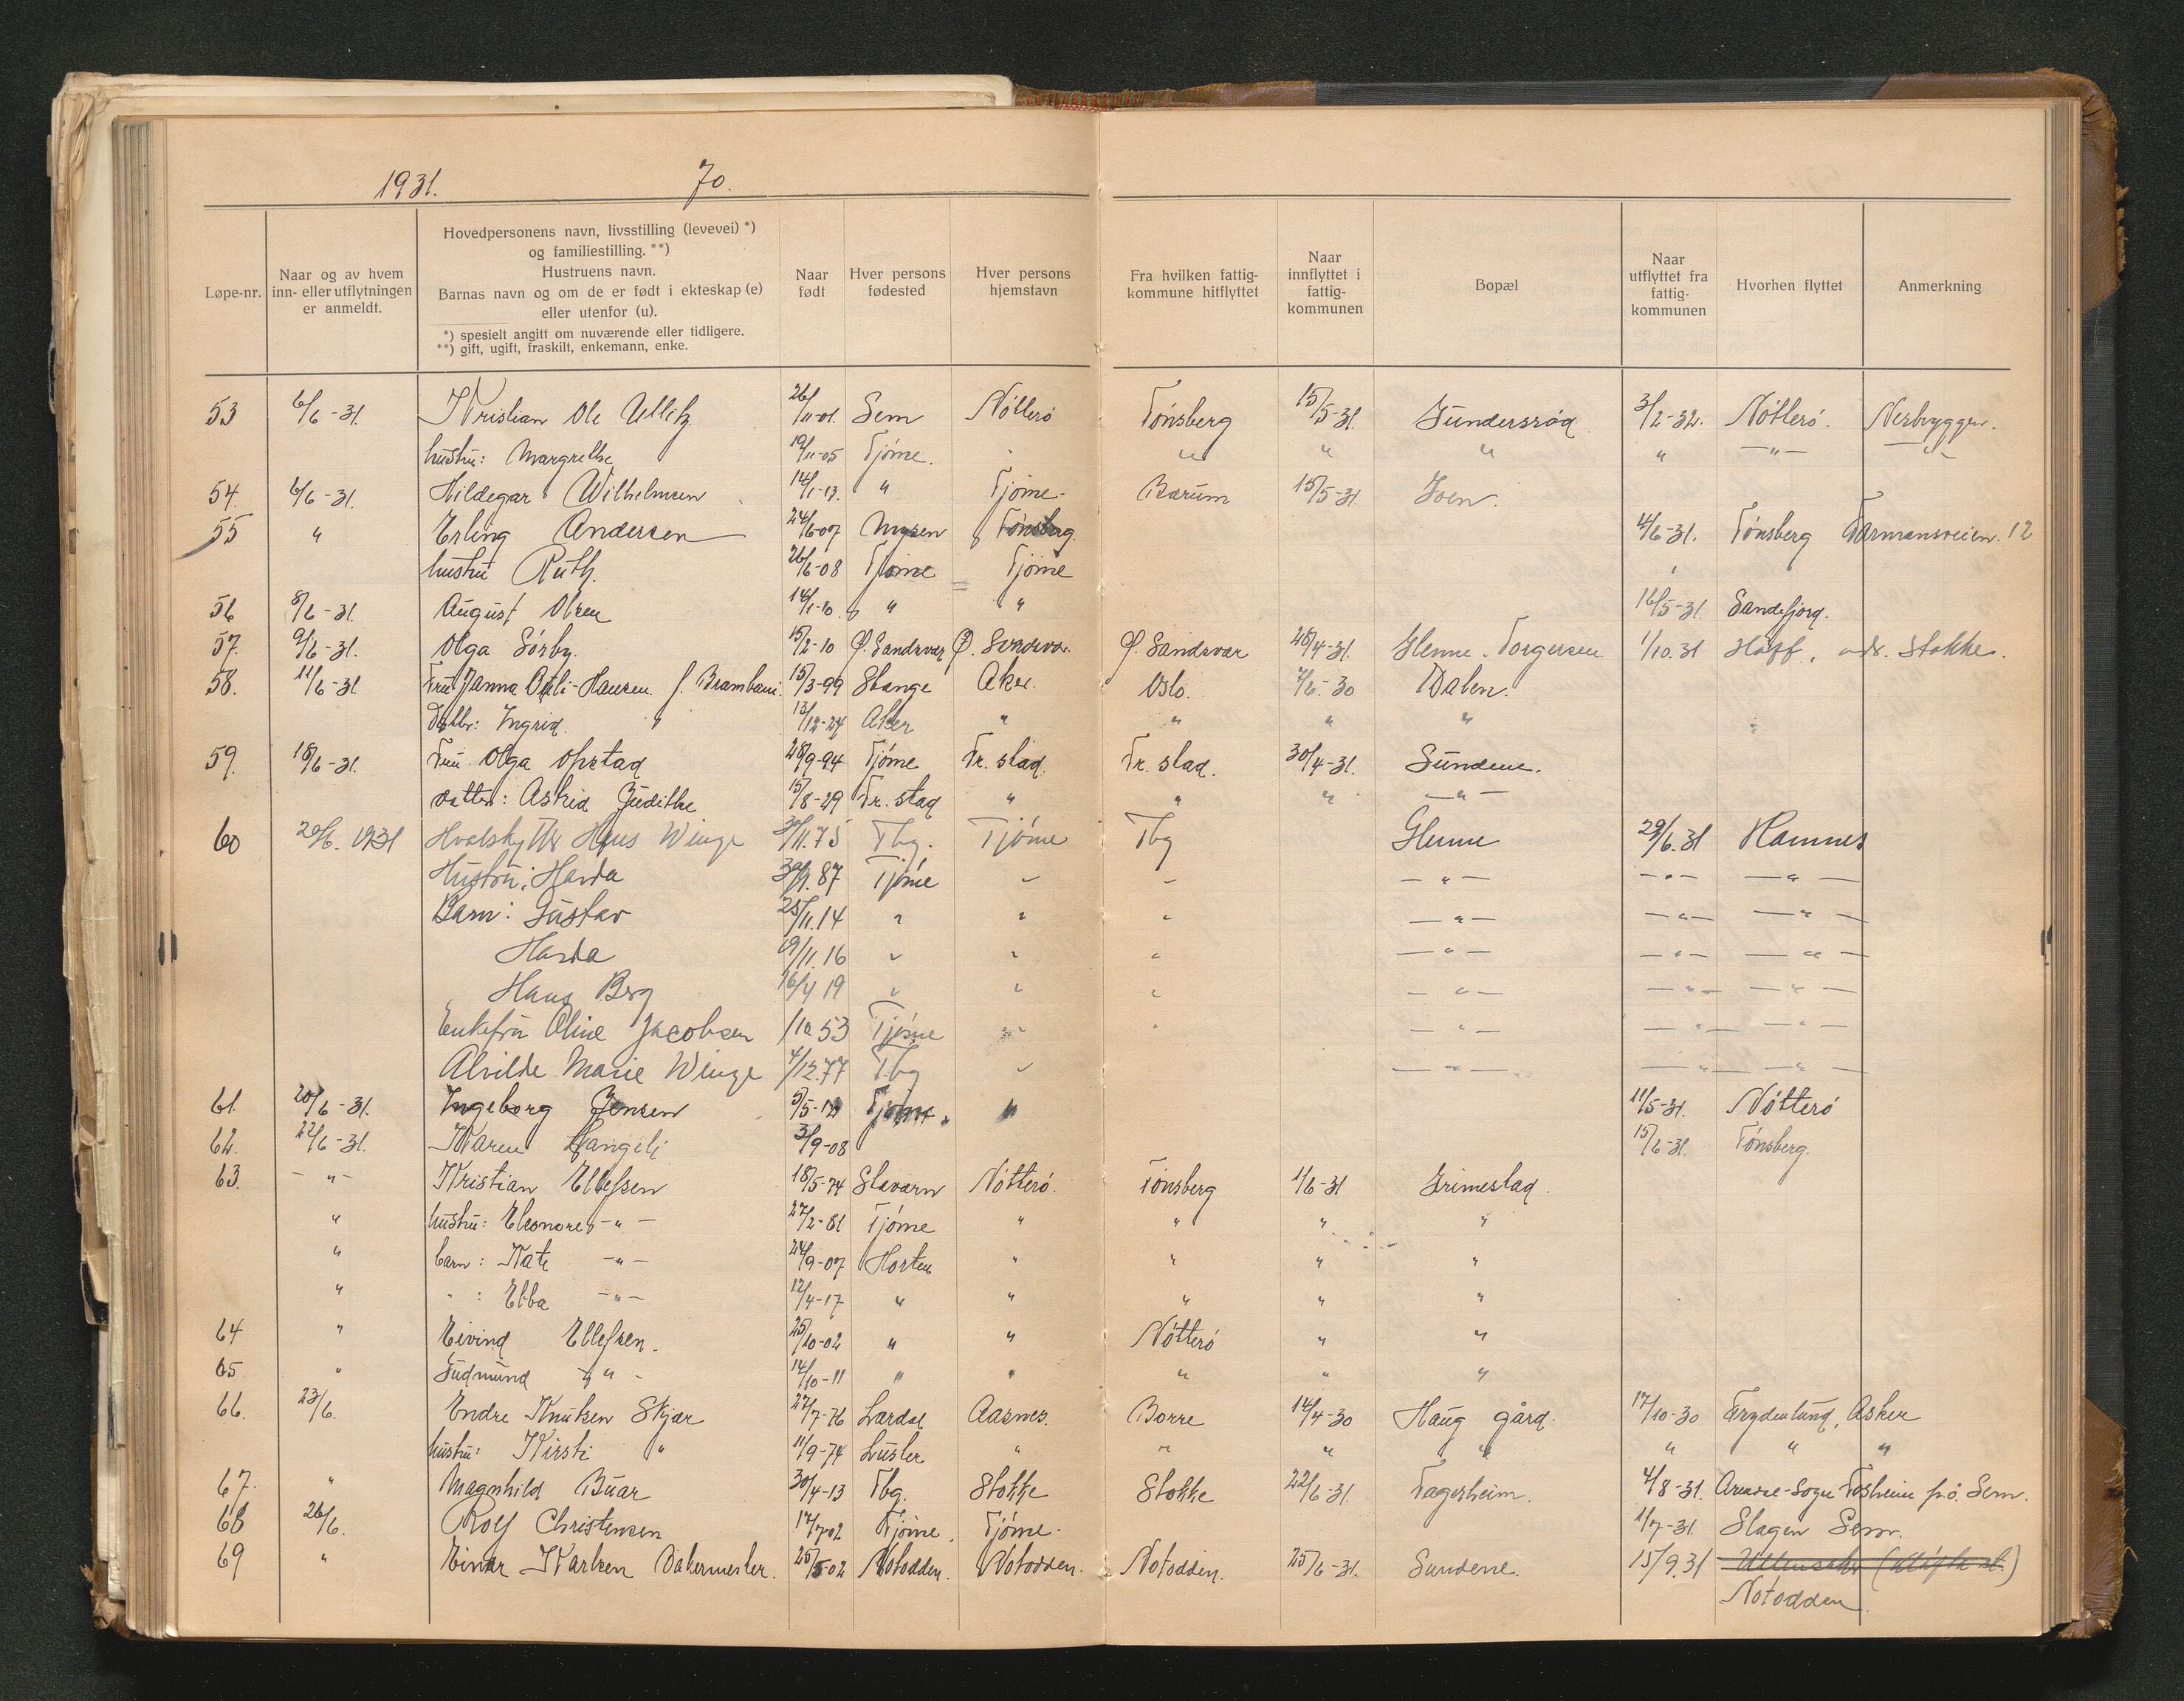 1931. 70.
Løpe-nr. | Naar og av hvem inn- eller utflytningen er anmeldt. | Hovedpersonens navn, livsstilling (levevei) *) og familiestilling. **) Hustruens navn. Barnas navn og om de er født i ekteskap (e) eller utenfor (u). *) spesielt angitt om nuværende eller tidligere. **) gift, ugift, fraskilt, enkemann, enke. | Naar født | Hver persons fødested | Hver persons hjemstavn | Fra hvilken fattig-kommune hitflyttet | Naar innflyttet i fattig-kommunen | Bopæl | Naar utflyttet fra fattig-kommunen | Hvorhen flyttet | Anmerkning
53 6/6-31. Kristian Ole Ullitz 26/11-01. Sem Nötterö Tönsberg 15/5-31. Gundersrød 3/2-32. Nötterö. Nerbyggen.
hustru: Margrethe 19/11-05 Tjöme. " " " " — " —
54. 6/6-31. Hildegar Wilhelmsen 14/1-13. " Tjöme. Bærum 15/5-31.
55 " Erling Andersen 24/6-07 Mysen Tönsberg. 4/6-31. Tönsberg Farmansveien. 12
hustru Ruth. 26/6-08 Tjöme Tjöme
56 8/6-31. August Olsen 14/1-10. " " 16/5-31 Sandefjord.
57. 9/6-31. Olga Sörby. 15/2-10 Ø. Sandsvær Ø. Sandsvær Ø. Sandsvær 28/4-31. Glenne - Torgersen 1/10.31 Hoff, adr. Stokke.
58. 11/6-31 Fru Janna -Hansen. f. 15/3-99 Stange Aker. Oslo. 7/6-30 Dalen.
Datter: Ingrid. " 13/12-24 Aker " " " "
59. 18/6-31. Fru Olga Opstad 28/9-94 Tjöme Fr. stad. Fr. stad. 30/4-31. Sundene.
datter: Astrid Judithe 15/8-29 Fr. stad " " " — " —
60 20/6. 1931 Hvalsk. Hans Winge 30/11.75 Tbg. Tjöme Tbg Glenne 29/6.31 Hamnes
Hustru: Harda 30/9.87 Tjöme " " — " — — " — — " —
Barn: Gustav 25/11.14 " " " — " — — " — — " —
Harda 19/11.16 " " " — " — — " — — " —
Hans Berg 16/4 19 " " " — " — — " — — " —
Enkefru Oline Jacobsen /10.53 Tjöme " " — " — — " — — " —
Alvilde Marie Winge 4/12.77 Tbg " — " — — " — — " —
61. 20/6-31. Ingeborg Jensen Tjöme " 11/5-31. Nötterö
62. 22/6-31. Karen Langeli 3/9-08 15/6-31. Tönsberg.
63. — " — Kristian Ellefsen 18/5-74 Stavern Nötterö. Tönsberg 1/6-31 Grimestad.
" hustru: Eleonore — " — 27/2-81 Tjöme " " " "
" barn: Kate — " — 24/9-07 Horten " " " "
" " : Ebba — " — 12/4-17 " " " " "
64 " Eivind Ellefsen. 25/10-02 " " Nötterö " "
65 " Gudmund — " — 14/10-11 " " " " "
66. 23/6. Endre Knutsen Skjær 27/7-76 Lærdal Aasnes. Borre 14/4-30 Haug gård. 17/10-30 Frydenlund, Asker
hustru: Kirsti " 11/9-74 Luster " " " " " " "
67. " Magnhild Buar 30/4-13 Tbg. Stokke Stokke 22/6-31. Fagerheim. 4/8-31. Arendre-Sogn Fosheim p.å. Sem.
68 26/6. Rolf Christensen 17/7-02 Tjöme. Tjöme. 1/7-31. Slagen Sem.
69 " Einar Karlsen Bakermester. 25/5-02 Notodden. Notodden. Notodden. 25/6-31. Sundene. 15/9.31
Notodden